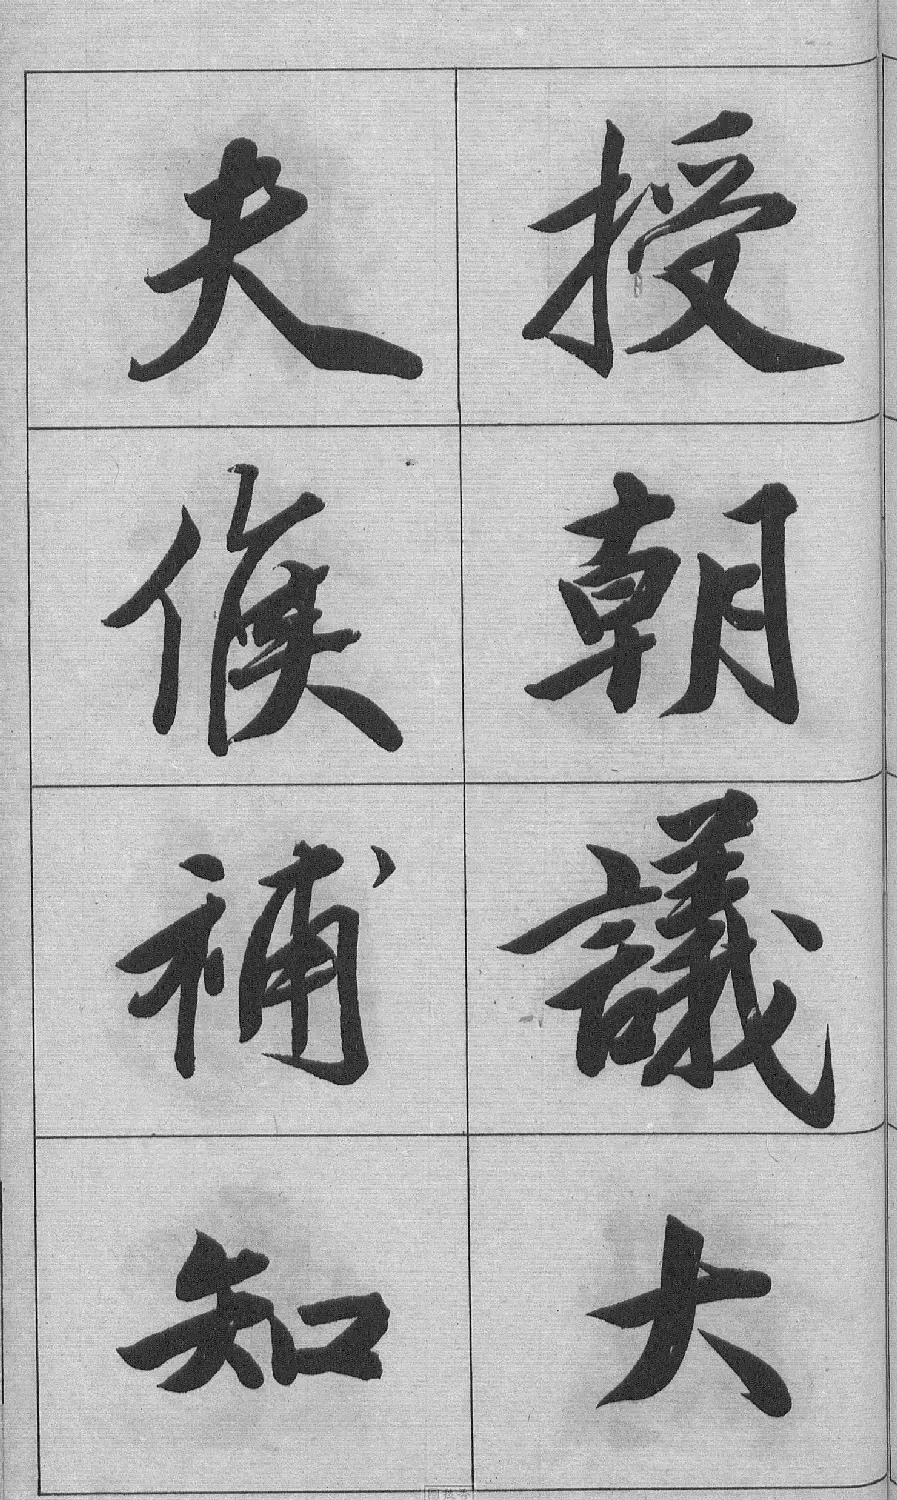 授朝議大
夫候補知